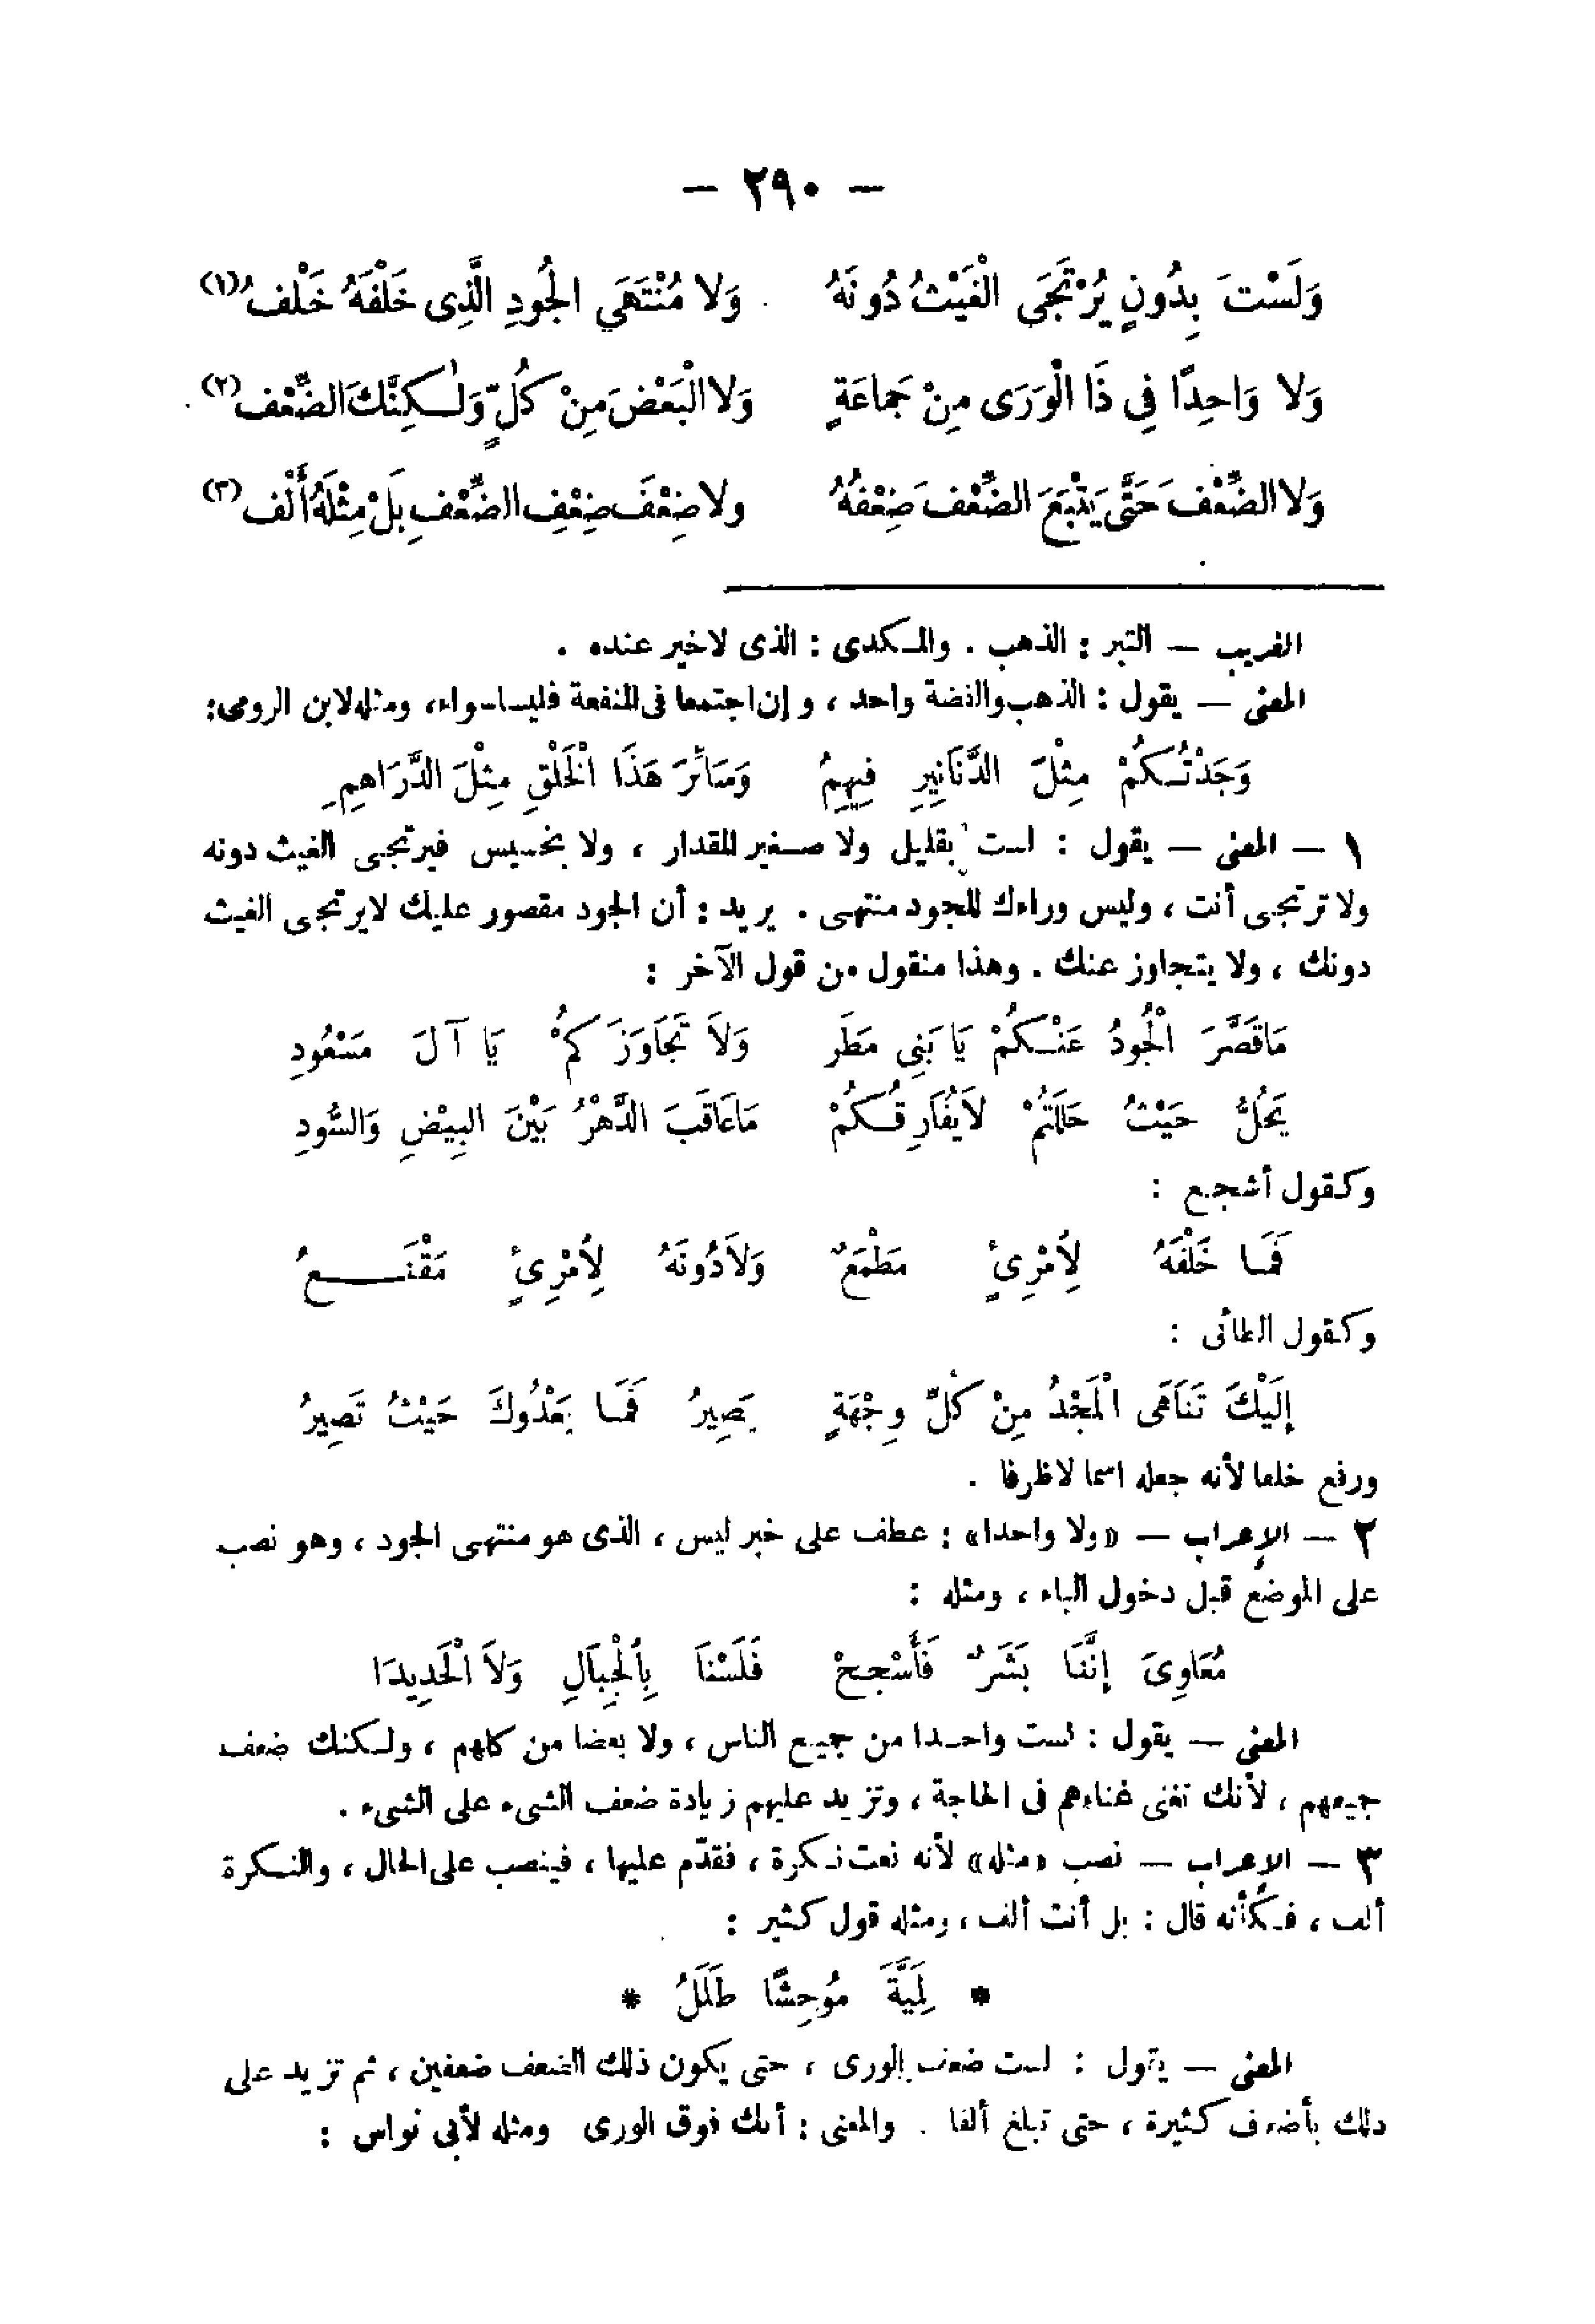 — ٢٩٠ —
وَلَسْتَ بِدُونٍ يُرْتَجَى الْغَيْثُ دُونَهُ وَلا مُنْتَهَى الْجُودِ الَّذِى خَلْفَهُ خَلْفُ (١)
وَلا وَاحِدًا فِى ذَا الْوَرَى مِنْ جَمَاعَةٍ وَلا الْبَعْضَ مِنْ كُلٍّ وَلٰكِنَّكَ الضِّعْف (٢)
وَلا الضِّعْفَ حَتَّى يَتْبَعَ الضِّعْفَ ضِعْفُهُ ولا ضِعْفَ ضِعْفِ الضِّعْفِ بَلْ مِثْلَهُ أَلْف (٣)
الغريب — التبر : الذهب . والمكدى : الذى لاخير عنده .
المعنى — يقول : الذهب والفضة واحد ، وإن اجتمعا فى المنفعة فليسا سواء، ومثله لابن الرومى:
وَجَدْتُكُمْ مِثْلَ الدَّنَانِيرِ فِيهِمُ وَسَائِرَ هَذَا الْخَلْقِ مِثْلَ الدَّرَاهِمِ
١ — المعنى — يقول : لست بقليل ولا صغير المقدار ، ولا بخسيس فيرتجى الغيث دونه
ولا ترتجى أنت ، وليس وراءك للجود منتهى . يريد : أن الجود مقصور عليك لايرتجى الغيث
دونك ، ولا يتجاوز عنك . وهذا منقول من قول الآخر :
مَاقَصَّرَ الْجُودُ عَنْكُمْ يَا بَنِى مَطَرٍ وَلاَ تَجَاوَزَكُمْ يَا آلَ مَسْعُودِ
يَحُلُّ حَيْثُ حَلَلْتُمْ لاَيُفَارِقُكُمْ مَاعَاقَبَ الدَّهْرُ بَيْنَ البِيْضِ وَالسُّودِ
وكقول أشجع :
فَمَا خَلْفَهُ لِأَمْرِئٍ مَطْمَعٌ وَلاَدُونَهُ لِأَمْرِئٍ مَقْنَعُ
وكقول الطائى :
إِلَيْكَ تَنَاهَى الْمَجْدُ مِنْ كُلِّ وِجْهَةٍ يَصِيرُ فَمَا يَعْدُوكَ حَيْثُ تَصِيرُ
ورفع خلفا لأنه جعله اسما لاظرفا .
٢ — الإعراب — «ولا واحدا» : عطف على خبر ليس ، الذى هو منتهى الجود ، وهو نصب
على الموضع قبل دخول الباء ، ومثله :
مُعَاوِىَ إِنَّنَا بَشَرٌ فَأَسْجِحْ فَلَسْنَا بِالْجِبَالِ وَلاَ الْحَدِيدَا
المعنى — يقول : لست واحدا من جميع الناس ، ولا بعضا من كلهم ، ولكنك ضعف
جميعهم ، لأنك تغنى غناءهم فى الحاجة ، وتزيد عليهم زيادة ضعف الشىء على الشىء .
٣ — الإعراب — نصب «مثله» لأنه نعت نكرة ، فقدّم عليها ، فينصب على الحال ، والنكرة
ألف ، فكأنه قال : بل أنت ألف ، ومثله قول كثير :
* لِمَيَّةَ مُوحِشًا طَلَلُ *
المعنى — يقول : لست ضعف الورى ، حتى يكون ذلك الضعف ضعفين ، ثم تزيد على
ذلك بأضعف كثيرة ، حتى تبلغ ألفا . والمعنى : أنك فوق الورى ومثله لأبى نواس :